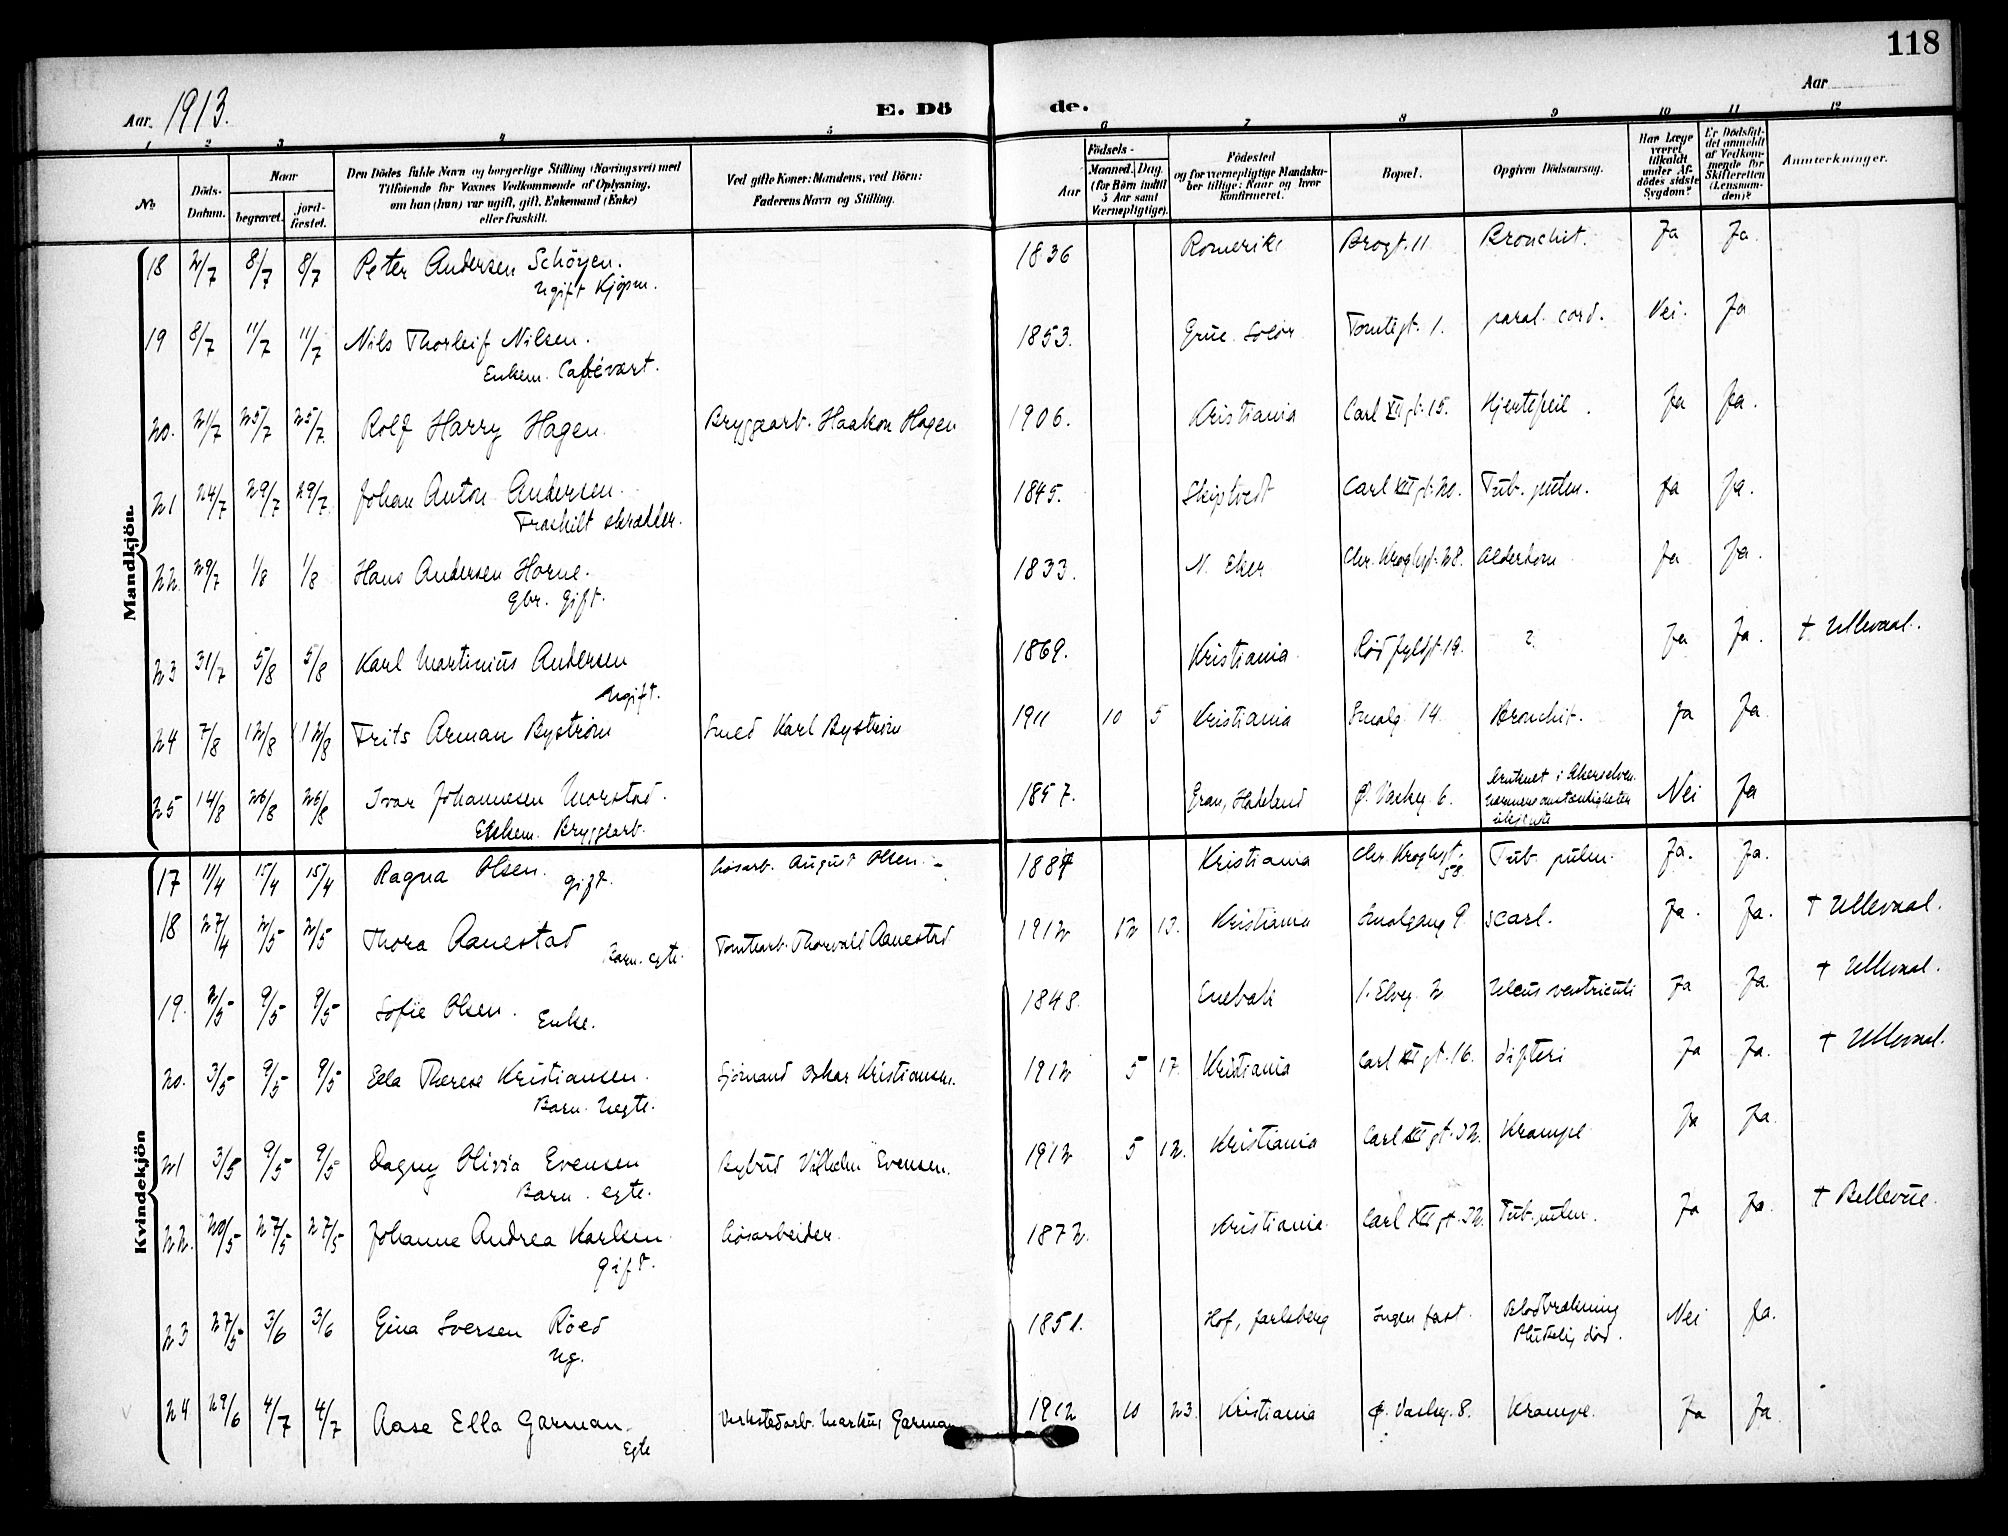 118
Aar
Aar. 1913.
E. Dö de.
1 2 3 4 5 6 7 8 9 10 11 12
No
Döds-Datum.
Naar
begravet. jordfæstet.
Den Dödes fulde Navn og borgerlige Stilling (Næringsvei) med
Tilföiende for Voxnes Vedkommende af Oplysning,
om han (hun) var ugift, gift, Enkemand (Enke)
eller fraskilt.
Ved gifte Koner: Mandens, ved Börn:
Faderens Navn og Stilling.
Födsels-
Aar
Maaned. Dag.
(for Börn indtil
5 Aar samt
Værnepligtige).
Födested
og for værnepligtige Mandskaber tillige: Naar og hvor
konfirmeret.
Bopæl.
Opgiven Dödsaarsag.
Har Læge
været
tilkaldt
under Afdödes sidste
Sygdom?
Er Dödsfaldet anmeldt
af Vedkommende for
Skifteretten
(Lensmanden)?
Anmærkninger.
Mandkjön.
18 2/7 8/7 8/7 Peter Andersen Schöyen. 1836 Romerike Brogt. 11 Bronchit. Ja Ja.
Ugift Kjøpm.
19 8/7 11/7 11/7 Nils Thorleif Nilsen. 1853. Grue Solør Tomtegt. 1. paral. cord. Nei. Ja
Enkem. Cafévært.
20. 21/7 25/7 25/7 Rolf Harry Hagen. Bryggearb. Haakon Hagen 1906. Kristiania Carl XII gt. 15. Hjertefeil. Ja Ja.
21 24/7 29/7 29/7 Johan Anton Andersen. 1845. Skiptvedt Carl XII gt. 20. Tub. pulm. Ja Ja.
Fraskilt skrædder.
22 29/7 1/8 1/8 Hans Andersen Horne. 1833. N. Eker Chr. Kroghgt. 28. Alderdom Ja Ja.
Gbr. Gift.
23 31/7 5/8 5/8 Karl Martinius Andersen 1869. Kristiania. Rødfyldgt. 19. ? Ja Ja. † Ullevaal.
Ugift.
24 7/8 12/8 12/8 Frits Arman Byström Smed Karl Byström 1911 10 5 Kristiania Smalg. 14. Bronchit. Ja Ja.
25 14/8 26/8 26/8 Ivar Johannesen Morstad. 1857. Gran, Hadeland Ø. Vaskeg. 6. druknet i Akerselven. nærmere omstændigheter ukjente Nei Ja
Enkem. Bryggearb.
Kvindekjön
17 11/4 15/4 15/4 Ragna Olsen. gift. Løsarb. August Olsen. 1884 Kristiania Chr. Kroghgt. 58. Tub. pulm. Ja. Ja.
18 27/4 2/5 2/5 Thora Aanestad Barn. egte. Tomtearb. Thorvald Aanestad 1912 12 13. Kristiania Smalgang 9. scarl. Ja. Ja. † Ullevaal.
19. 2/5 9/5 9/5 Sofie Olsen. Enke. 1848. Enebak l. Elveg. 2 Ulcus ventriculi Ja Ja. † Ullevaal.
20. 3/5 9/5 9/5 Ella Therese Kristiansen. Sjömand Oskar Kristiansen. 1912 5 17. Kristiania Carl XII gt. 16. difteri Ja Ja. † Ullevaal.
Barn. Uegte.
21 3/5 9/5 9/5 Dagny Olivia Evensen Bybud Vilhelm Evensen. 1912 5 12. Kristiania Carl XII gt. 32. Krampe Ja Ja.
Barn. egte.
22. 20/5 27/5 27/5 Johanne Andrea Karlsen. Løsarbeider. 1872. Kristiania Carl XII gt. 32. Tub. pulm. Ja Ja. † Bellevue.
gift.
23 27/5 3/6 3/6 Gina Iversen Röed 1851. Hof, Jarlsberg Ingen fast. Blodbrækning Plutselig død. Nei Ja.
Ug.
24 29/6 4/7 4/7 Aase Ella Garman. Verkstedarb. Markus Garman 1912 10 23. Kristiania Ø. Vaskeg. 8. Krampe. Ja Ja.
Egte